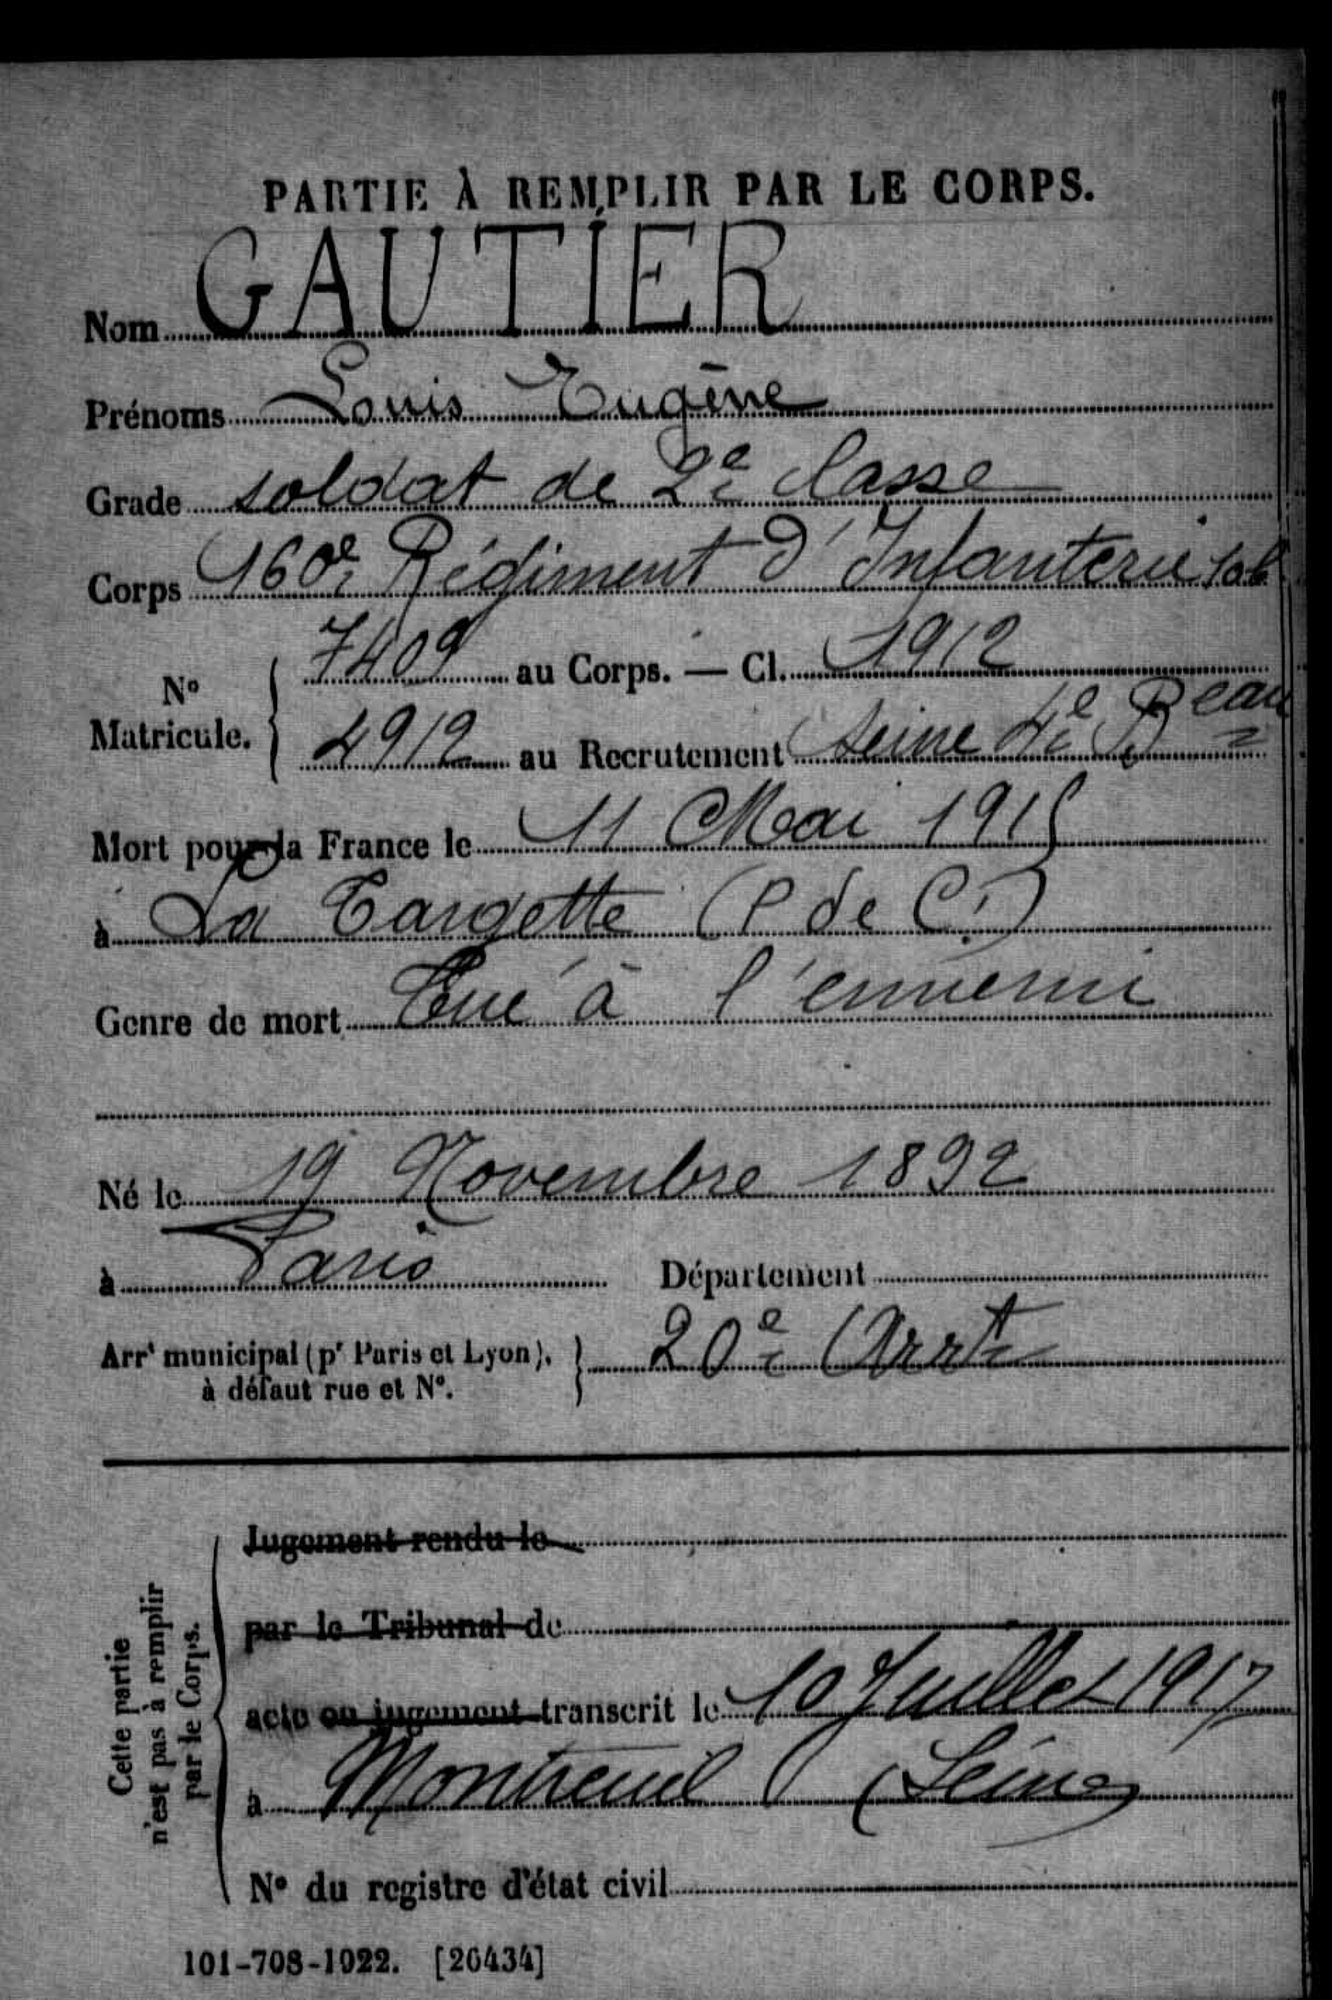 PARTIE À REMPLIR PAR LE CORPS.
Nom GAUTIER
Prénoms Louis Eugène
Grade soldat de 2e classe
Corps 160e Régiment d'Infanterie
N° Matricule. 7409 au Corps. — Cl. 1912
4912 au Recrutement Seine 4e Beau
Mort pour la France le 11 Mai 1915
à La Targette (P de C.)
Genre de mort Tué à l'ennemi
Né le 19 Novembre 1892
à Paris Département
Arrt municipal (pr Paris et Lyon), à défaut rue et N°. 20e Arrt
Cette partie n'est pas à remplir par le Corps.
Jugement rendu le
par le Tribunal de
acte ou jugement transcrit le 10 Juillet 1917
à Montreuil (Seine)
N° du registre d'état civil
101-708-1922. [26434]